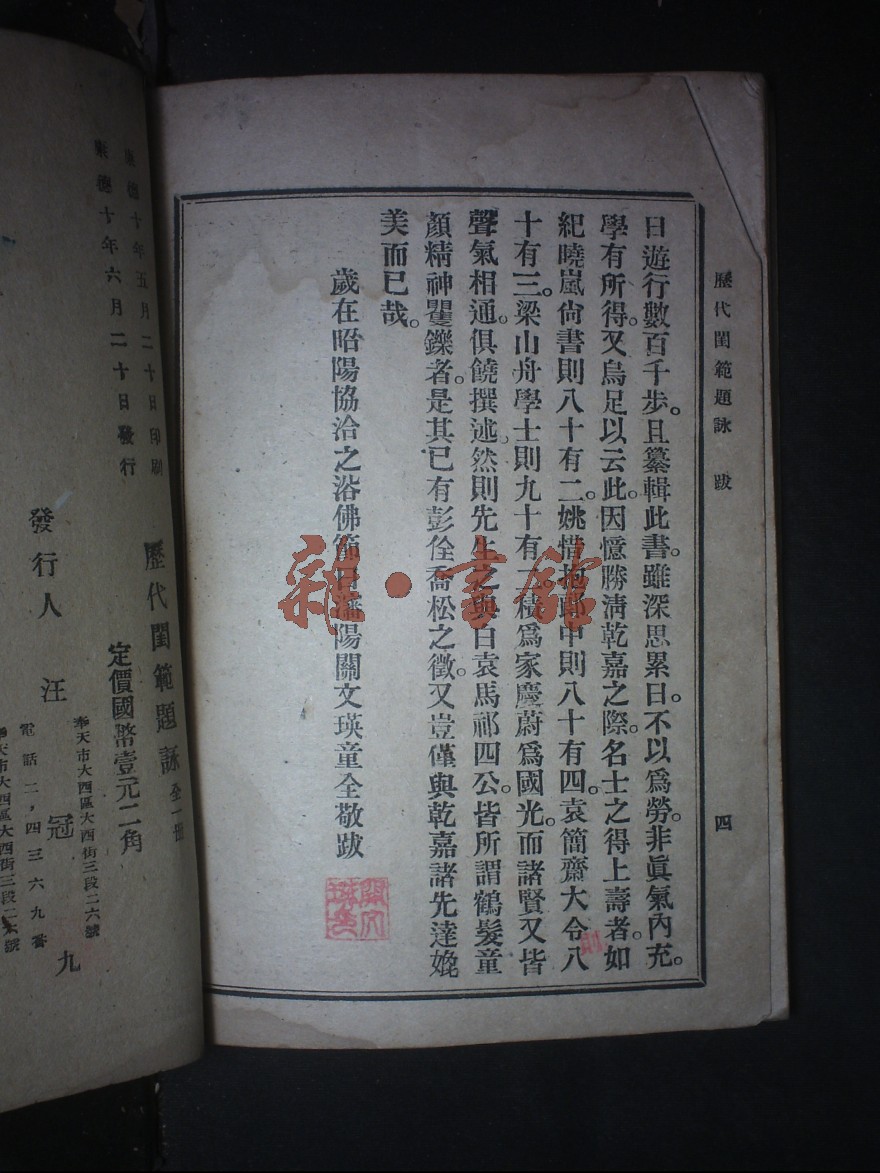 歷代閨範題詠 跋 四
日遊行數百千步。且纂輯此書。雖深思累日。不以爲勞。非眞氣內充。
學有所得。又烏足以云此。因憶勝淸乾嘉之際。名士之得上壽者。如
紀曉嵐尙書則八十有二。姚惜抱郎中則八十有四。袁簡齋大令八
十有三。梁山舟學士則九十有二。積爲家慶。蔚爲國光。而諸賢又皆
聲氣相通。俱饒撰述。然則先生之與白袁馬祁四公。皆所謂鶴髮童
顏精神矍鑠者。是其已有彭佺喬松之徵。又豈僅與乾嘉諸先達媲
美而已哉。
歲在昭陽協洽之浴佛節日瀋陽關文瑛童全敬跋
則
雜·書館
康德十年五月二十日印刷
康德十年六月二十日發行
歷代閨範題詠 全一冊
定價國幣壹元二角
奉天市大西區大西街三段二六號
發行人 汪冠九
電話二，四三六九番
奉天市大西區大西街三段二六號